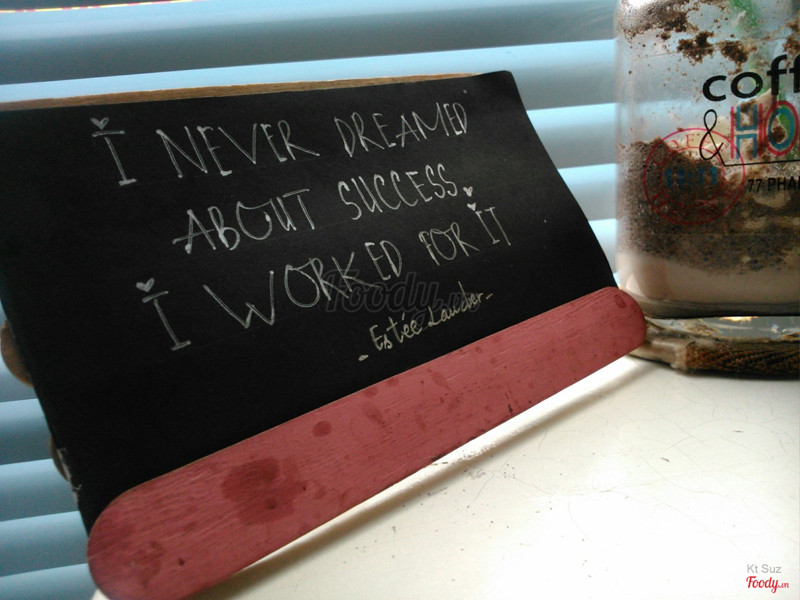 I NEVER DREAMED
ABOUT SUCCESS.
I WORKED FOR IT
- Estée Lauder -
coff
& HO
77 PHA
Foody.vn
Kt Suz
Foody.vn